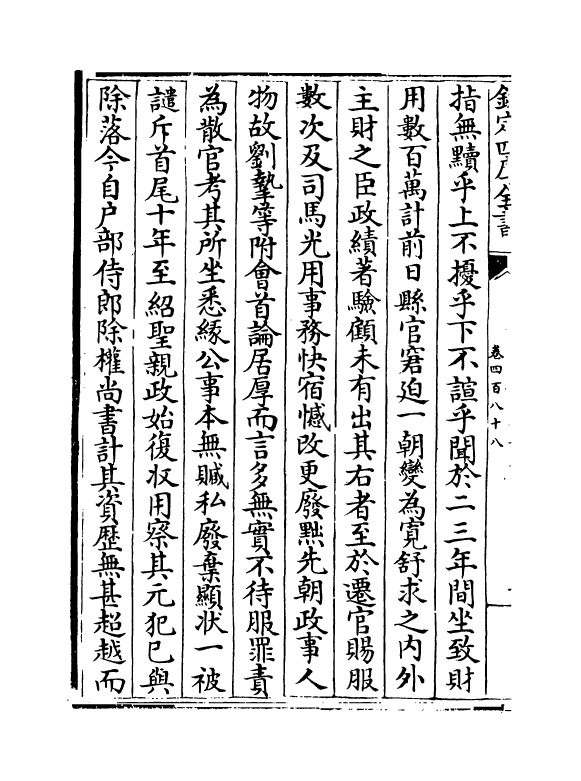 欽定四庫全書
卷四百八十八
指無黷乎上不擾乎下不諠乎聞於二三年間坐致財
用數百萬計前日縣官窘迫一朝變為寬舒求之内外
主財之臣政績著驗顧未有出其右者至於遷官賜服
數次及司馬光用事務快宿憾改更廢黜先朝政事人
物故劉摯等附會首論居厚而言多無實不待服罪責
為散官考其所坐悉緣公事本無贓私廢棄顯状一被
譴斥首尾十年至紹聖親政始復收用察其元犯已與
除落今自户部侍郎除權尚書計其資歴無甚超越而